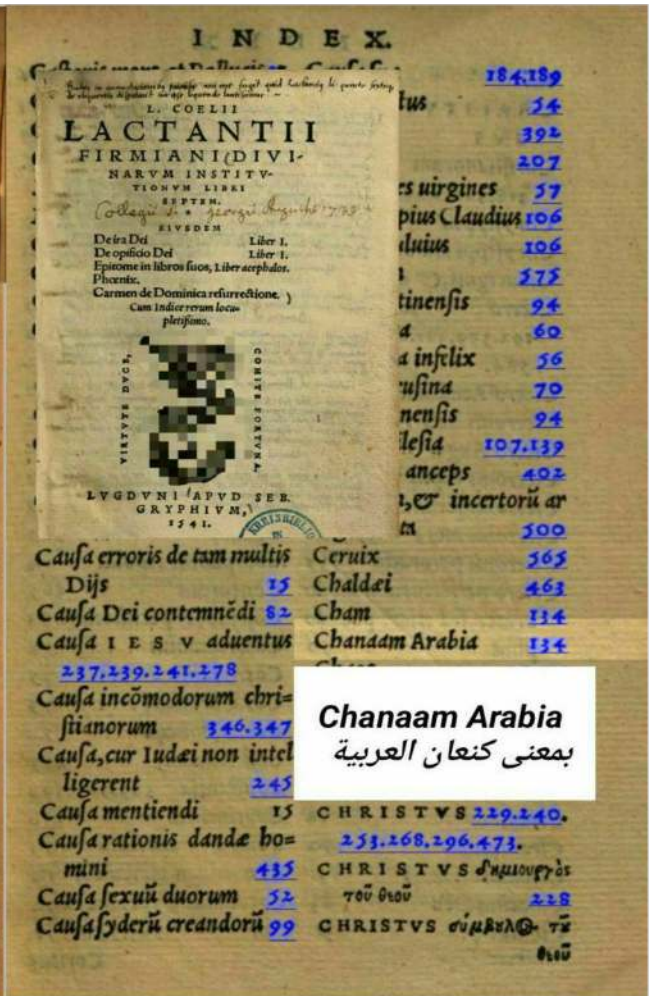 INDEX.
L. COELII
LACTANTII
FIRMIANI DIVI-
NARVM INSTITV-
TIONVM LIBRI
SEPTEM.
EIVSDEM
De ira Dei Liber I.
De opificio Dei Liber I.
Epitome in libros ſuos, Liber acephalos.
Phœnix.
Carmen de Dominica reſurrectione.
Cum Indice rerum locu-
pletiſsimo.
VIRTVTE DVCE,
COMITE FORTVNA.
LVGDVNI APVD SEB.
GRYPHIVM,
1541.
Cauſa erroris de tam multis
Dijs 15
Cauſa Dei contemnēdi 82
Cauſa IESV aduentus
237.239.241.278
Cauſa incōmodorum chri=
ſtianorum 346.347
Cauſa, cur Iudæi non intel
ligerent 245
Cauſa mentiendi 15
Cauſa rationis dandæ ho=
mini 435
Cauſa ſexuū duorum 52
Cauſa ſyderū creandorū 99
184.189
tus 54
392
207
es uirgines 57
pius Claudius 106
luius 106
575
tinenſis 94
60
a infelix 56
ruſina 70
nenſis 94
leſia 107.139
anceps 402
, & incertorū ar
ta 500
Ceruix 565
Chaldæi 463
Cham 134
Chanaam Arabia 134
Chanaam Arabia
بمعنى كنعان العربية
CHRISTVS 229.240.
253.268.296.473.
CHRISTVS δημιουργὸς
τοῦ θεοῦ 228
CHRISTVS σύμβουλος τοῦ
θεοῦ